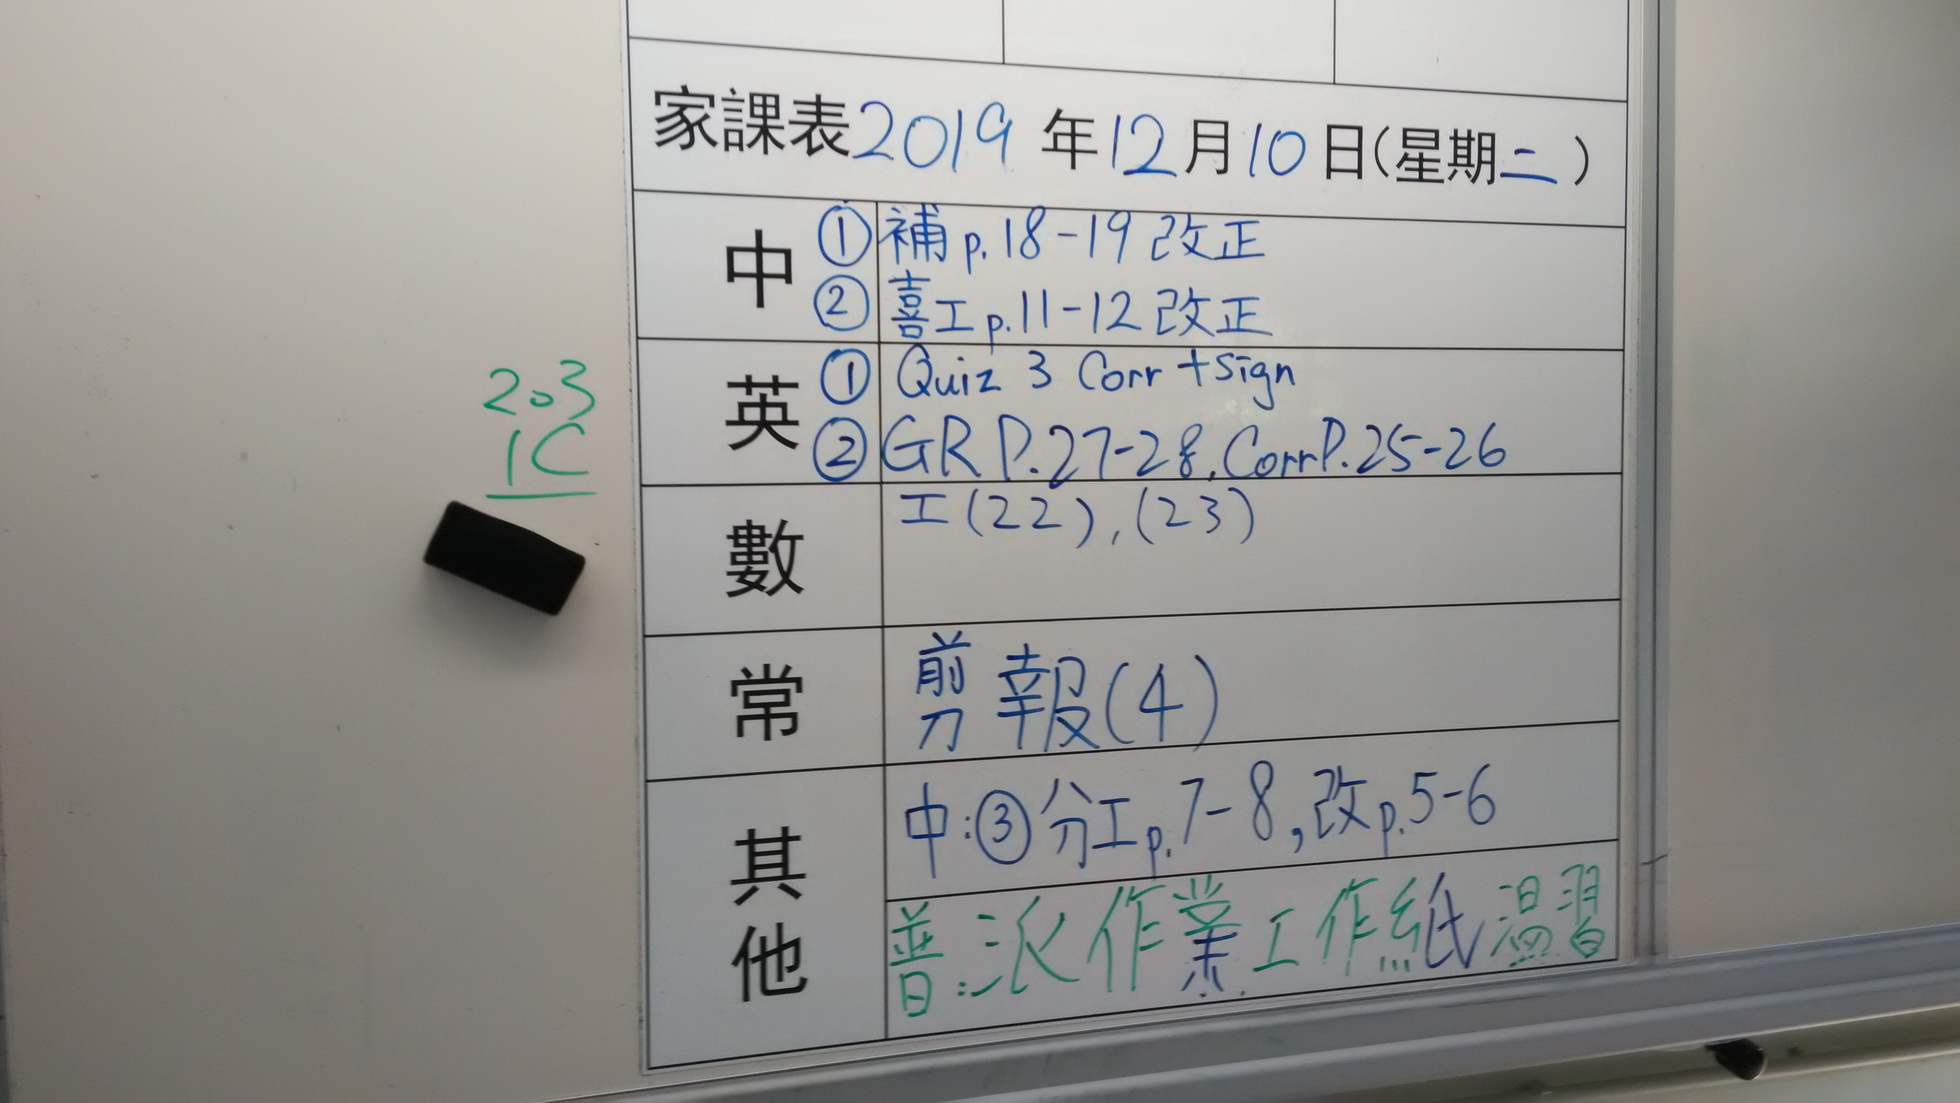 家課表2019年12月10日(星期二)
中 ① 補 p.18-19 改正
② 喜工 p.11-12 改正
英 ① Quiz 3 Corr + sign
② GR P.27-28, Corr P.25-26
數 工(22),(23)
常 剪報(4)
其他 中:③分工p.7-8,改p.5-6
普:派作業工作紙溫習
203
1C